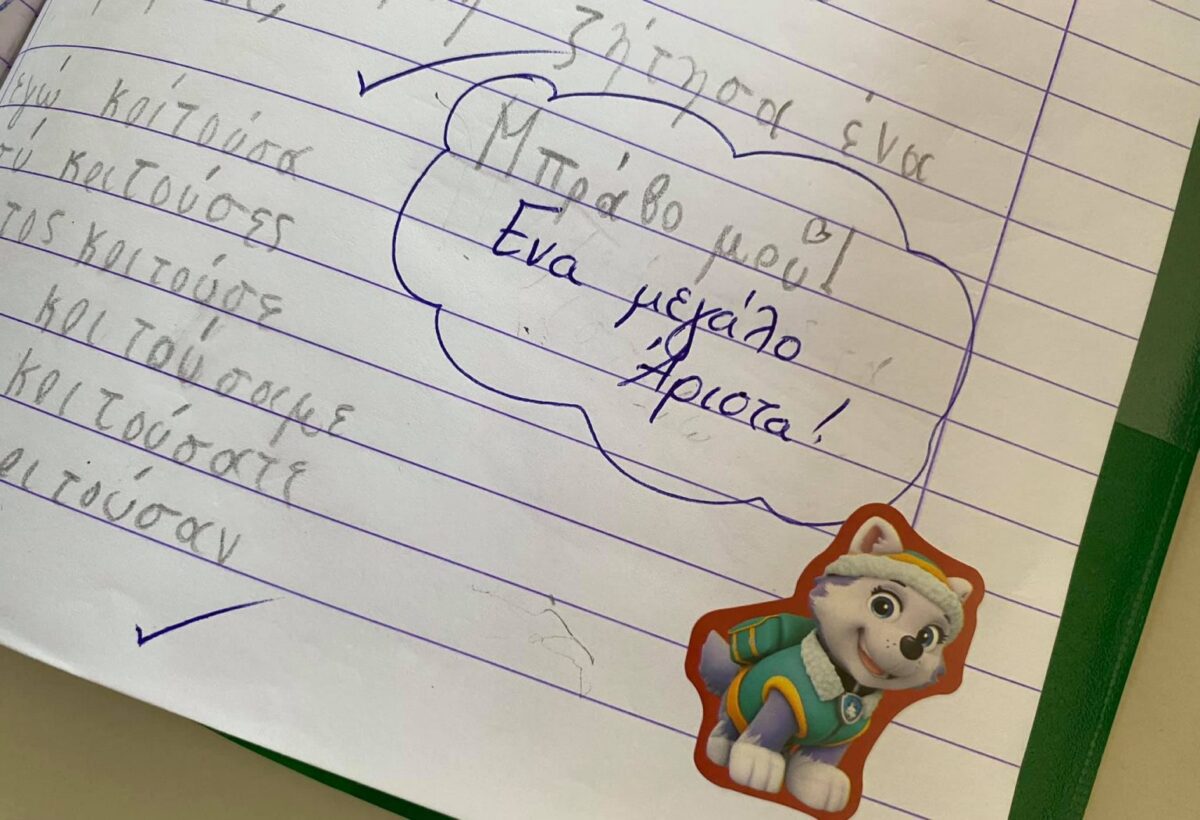 ζήτησα ένα
εγώ κοιτούσα
σύ κοιτούσες
τος κοιτούσε
κοιτούσαμε
κοιτούσατε
οιτούσαν
Μπράβο μου!
Ενα μεγάλο
Άριστα!